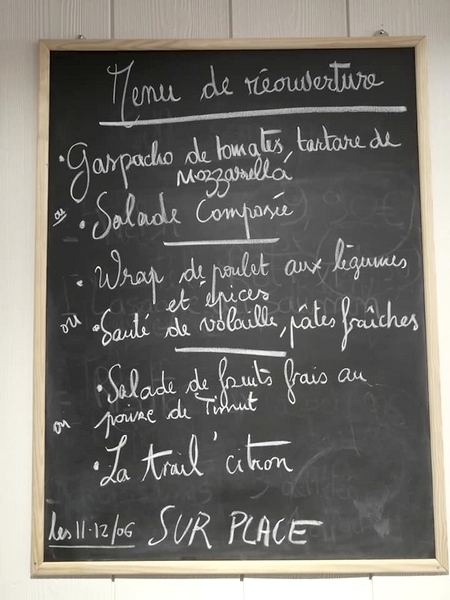 Menu de réouverture
• Gaspacho de tomates, tartare de
mozzarella
ou • Salade Composée
• Wrap de poulet aux légumes
et épices
ou • Sauté de volaille, pâtes fraîches
• Salade de fruits frais au
ou poivre de Timut
• La trail' citron
Les 11-12/06 SUR PLACE